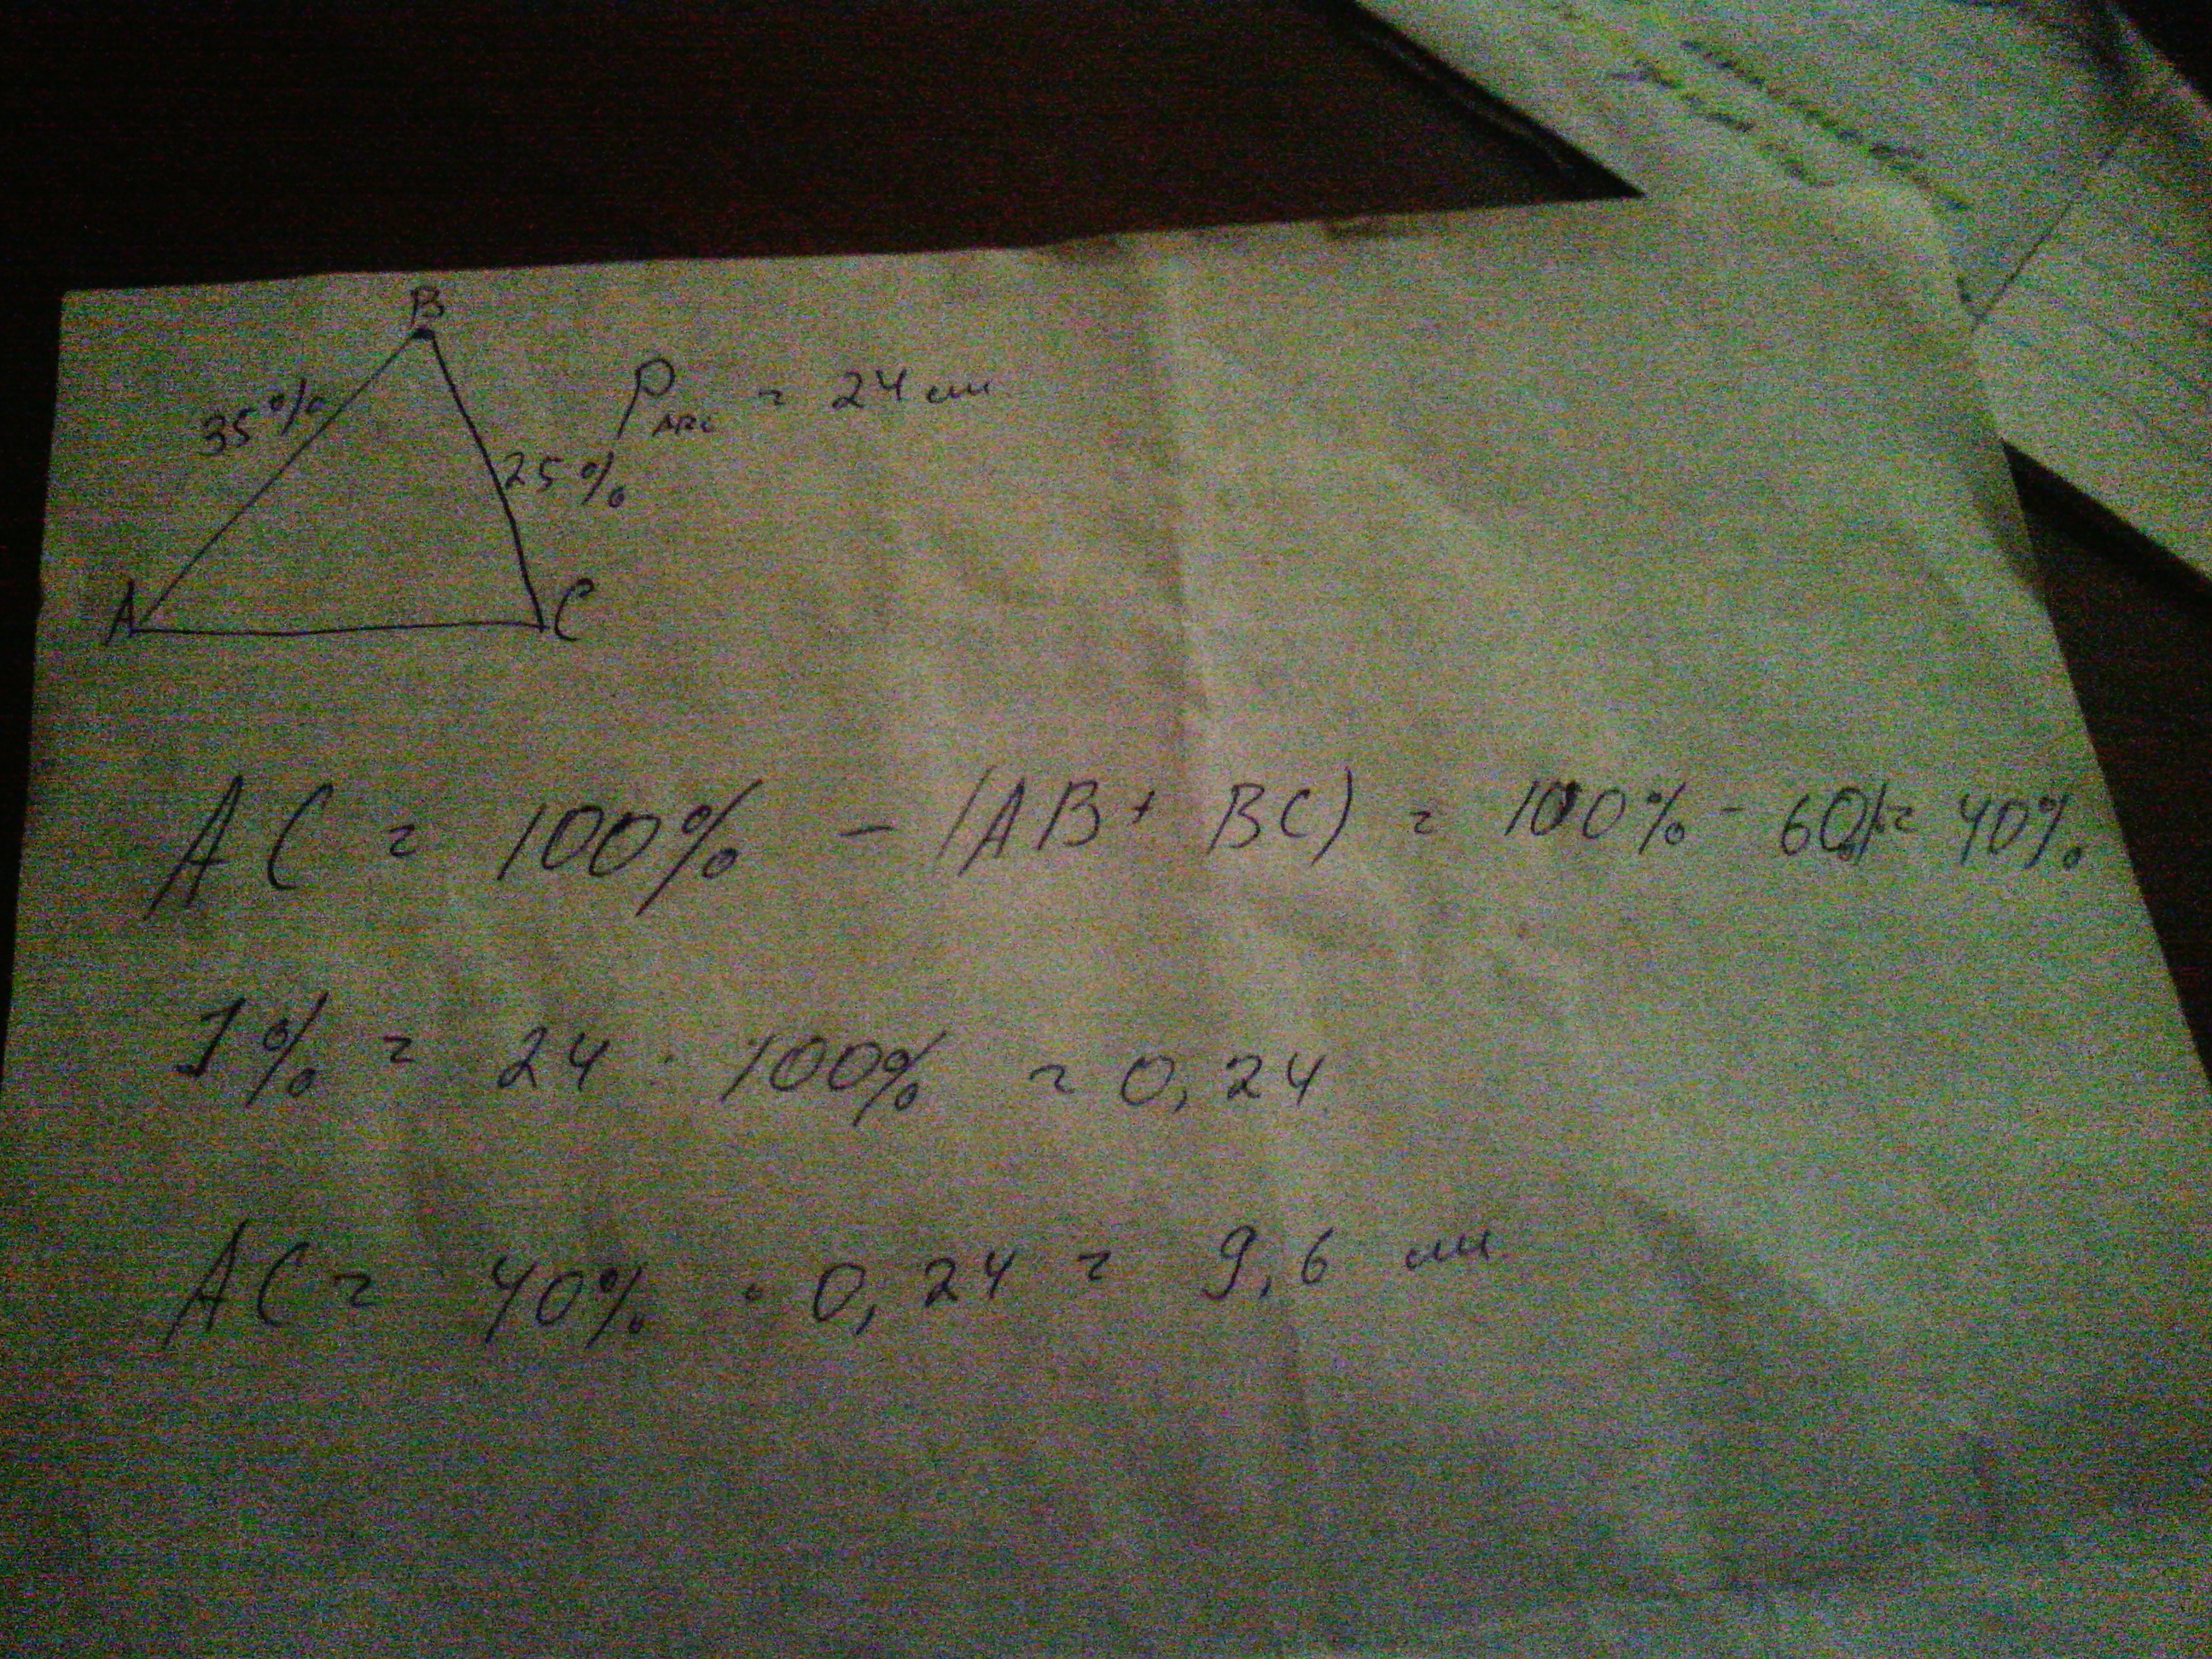 B
35%
P ABC = 24 см
25%
A
C
AC = 100% - (AB + BC) = 100% - 60% = 40%
1% = 24 : 100% = 0,24
AC = 40% · 0,24 = 9,6 см